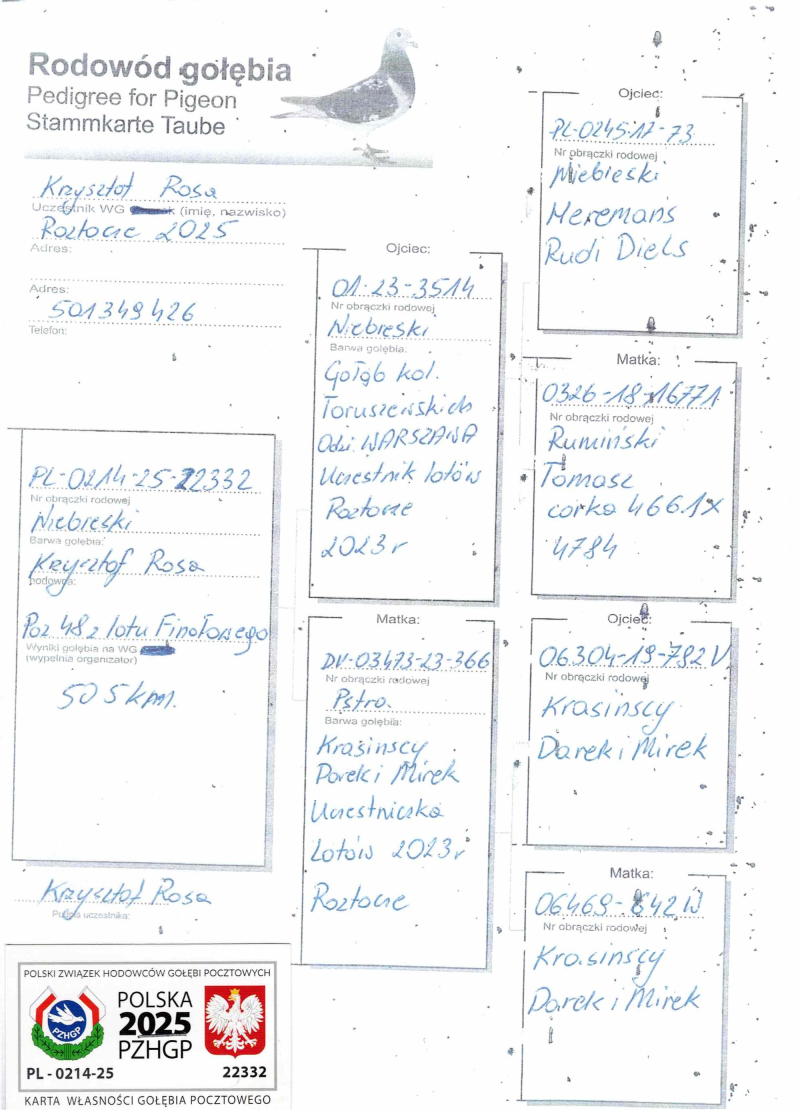 Rodowód gołębia
Pedigree for Pigeon
Stammkarte Taube
Krzysztof Rosa
Uczestnik WG (imię, nazwisko)
Roztocze 2025
Adres:
Adres:
501349426
Telefon:
PL-0214-25-22332
Nr obrączki rodowej
Niebieski
Barwa gołębia:
Krzysztof Rosa
hodowca:
Poz 48 z lotu Finałowego
Wyniki gołębia na WG
(wypełnia organizator)
505 km.
Krzysztof Rosa
Podpis uczestnika:
POLSKI ZWIĄZEK HODOWCÓW GOŁĘBI POCZTOWYCH
PZHGP
POLSKA
2025
PZHGP
PL - 0214-25 22332
KARTA WŁASNOŚCI GOŁĘBIA POCZTOWEGO
Ojciec:
01-23-3514
Nr obrączki rodowej
Niebieski
Barwa gołębia:
Gołąb kol.
Toruszewskich
Odz. WARSZAWA
Uczestnik lotów
Roztocze
2023 r
Matka:
DV-03473-23-366
Nr obrączki rodowej
Pstra.
Barwa gołębia:
Krasinscy
Darek i Mirek
Uczestniczka
Lotów 2023 r
Roztocze
Ojciec:
PL-0245-17-73
Nr obrączki rodowej
Niebieski
Heremans
Rudi Diels
Matka:
0326-18-16771
Nr obrączki rodowej
Rumiński
Tomasz
corka 466.1X
4784
Ojciec:
06304-19-782 V
Nr obrączki rodowej
Krasinscy
Darek i Mirek
Matka:
06469-842 W
Nr obrączki rodowej
Krasinscy
Darek i Mirek